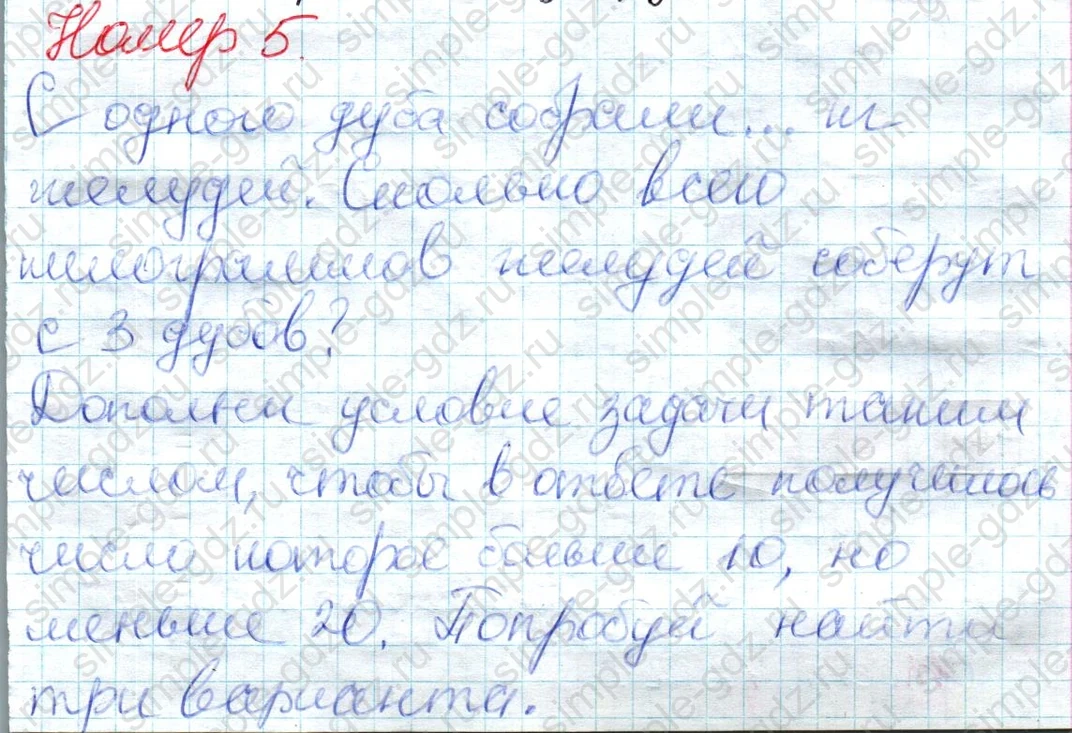 Номер 5.
С одного дуба собрали... кг
желудей. Сколько всего
килограммов желудей соберут
с 3 дубов?
Дополни условие задачи таким
числом, чтобы в ответе получилось
число которое больше 10, но
меньше 20. Попробуй найти
три варианта.
simple-gdz.ru